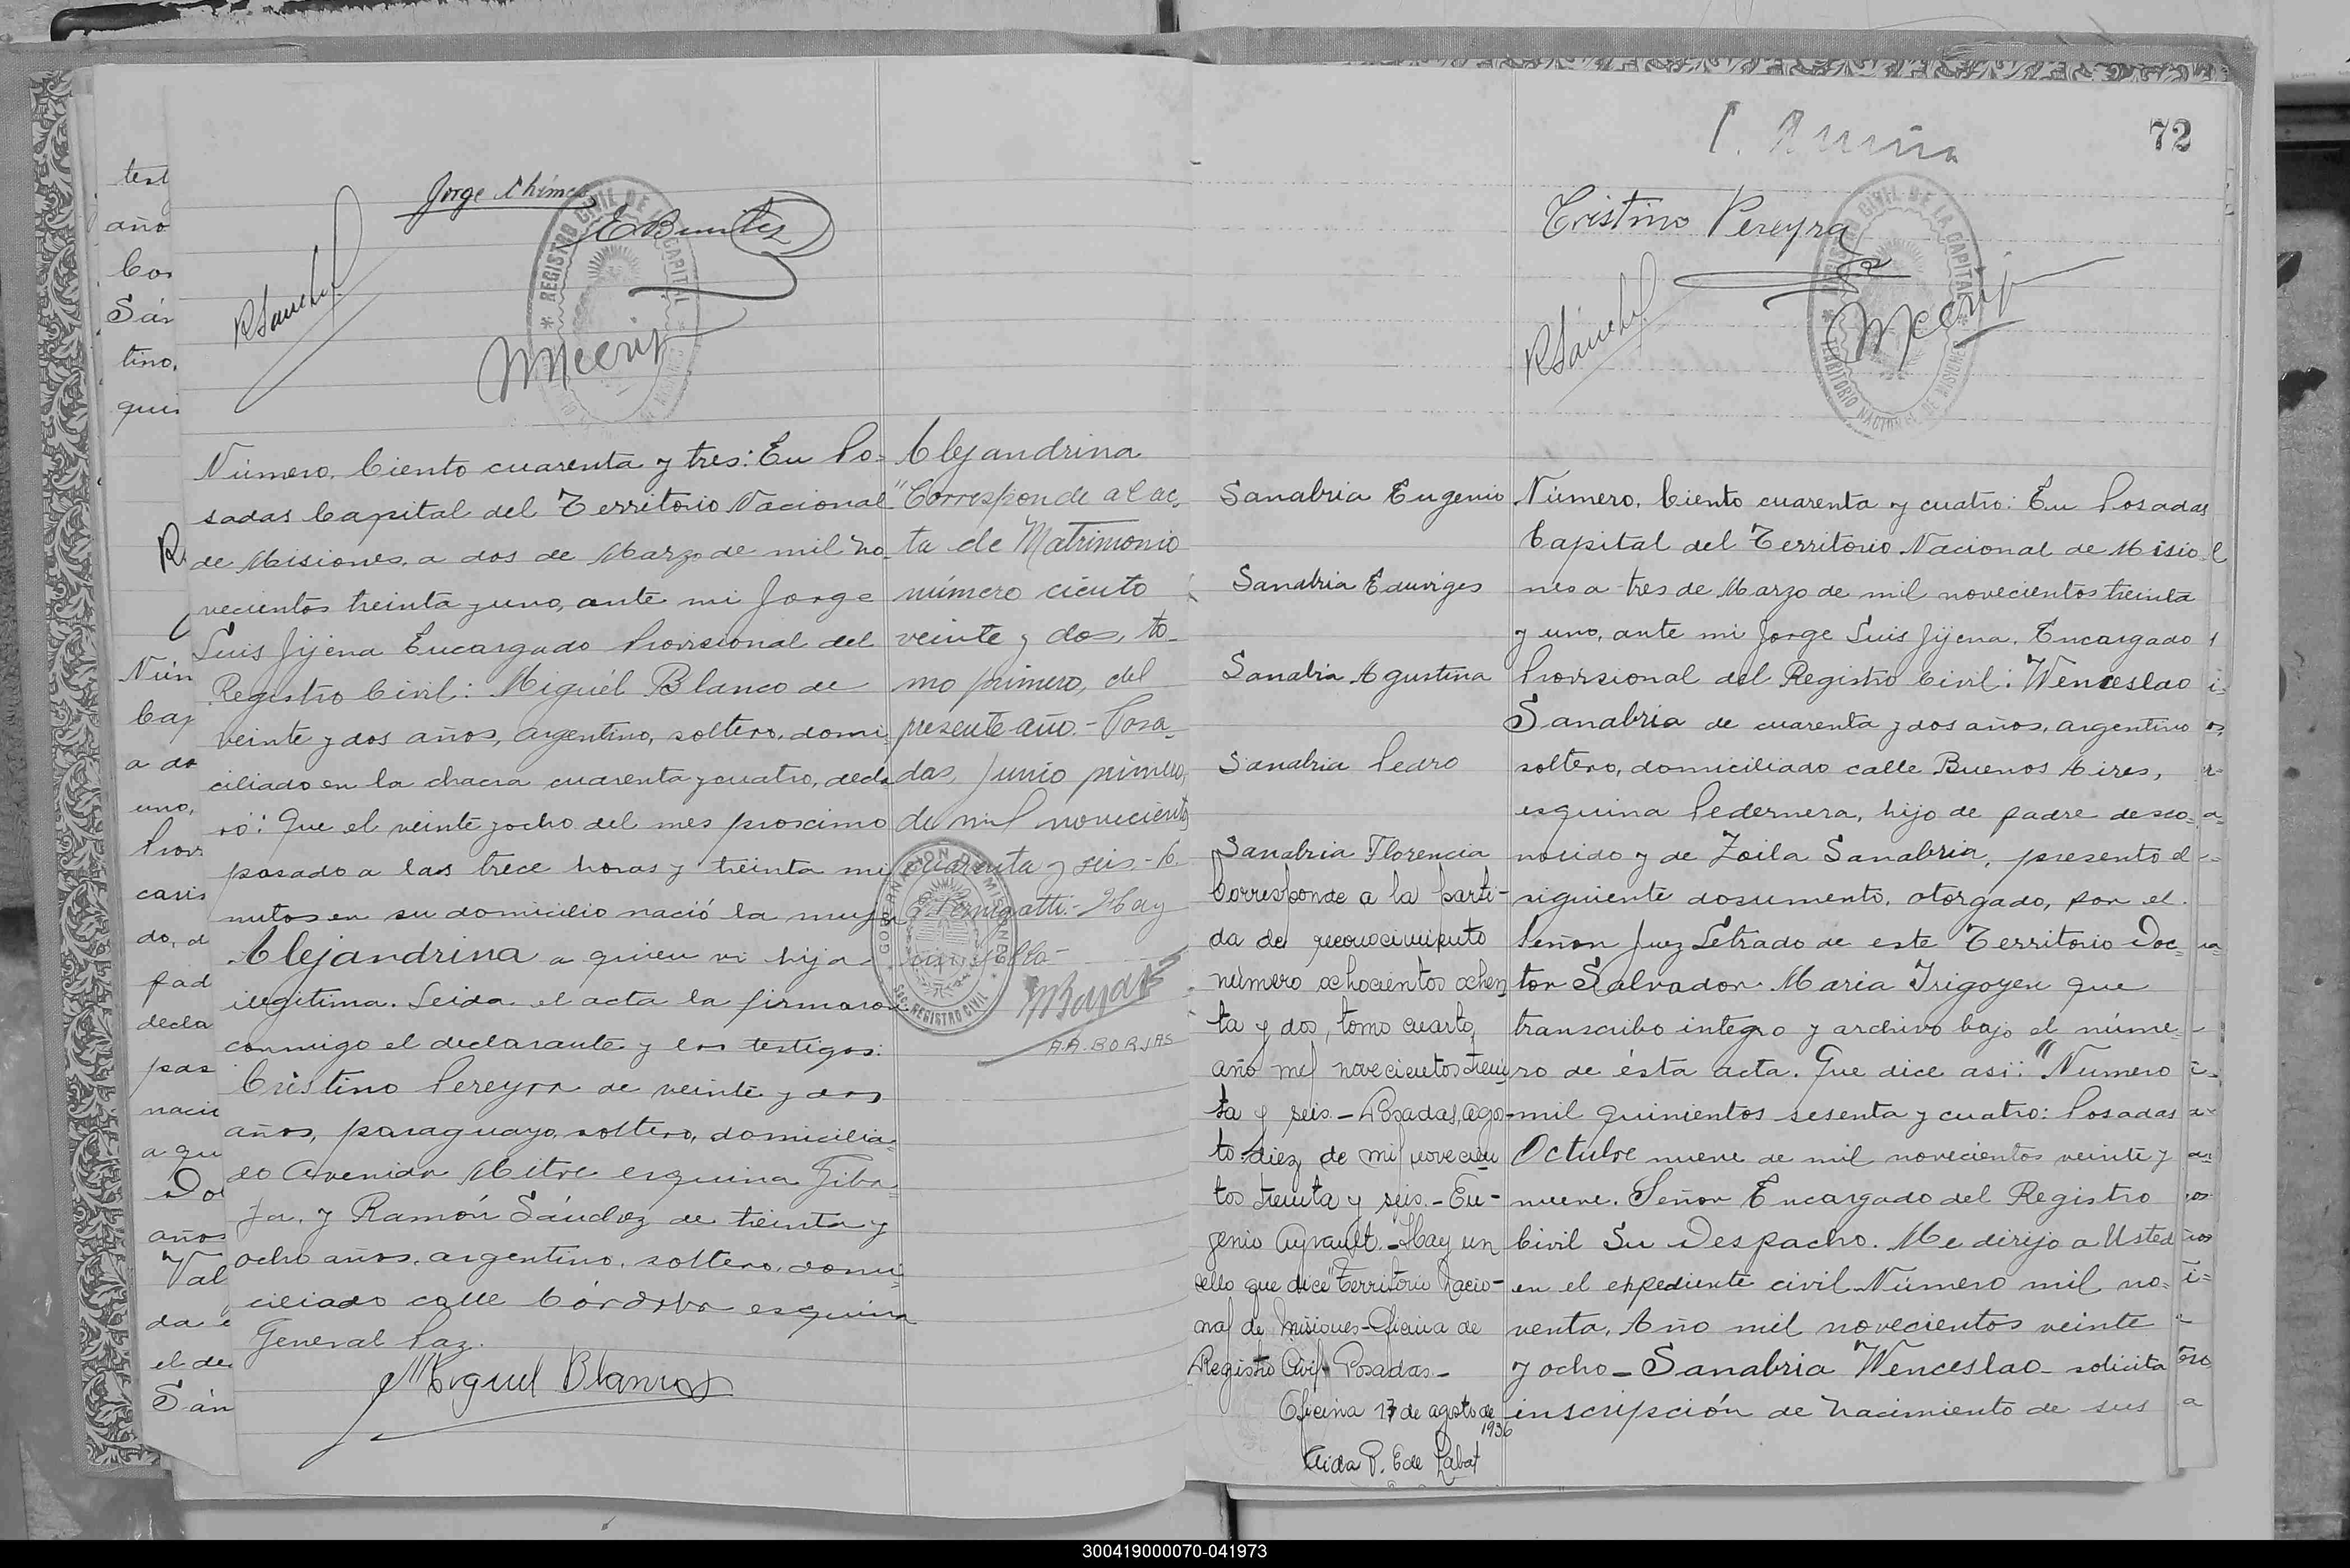 Jorge Chimes
E Benitez
RSanchez
Número. Ciento cuarenta y tres: En Po-
sadas Capital del Territorio Nacional
de Misiones, a dos de Marzo de mil no-
vecientos treinta y uno, ante mi Jorge
Luis Jijena Encargado Provisional del
Registro Civil: Miguél Blanco de
veinte y dos años, argentino, soltero, domi-
ciliado en la chacra cuarenta y cuatro, decla
ró: Que el veinte y ocho del mes proscimo
pasado a las trece horas y treinta mi
nutos en su domicilio nació la mujer
Alejandrina a quien vi hija
ilegitima. Leida el acta la firmaron
conmigo el declarante y los testigos:
Cristino Pereyra de veinte y dos
años, paraguayo, soltero, domicilia-
do Avenida Mitre esquina Tiba-
ja, y Ramón Sánchez de treinta y
ocho años, argentino, soltero, domi-
ciliado calle Córdoba esquina
General Paz.
Miguel Blanco
Alejandrina
"Corresponde al ac-
ta de Matrimonio
número ciento
veinte y dos, to-
mo primero, del
presente año.- Posa-
das, Junio primero,
de mil novecientos
cuarenta y seis.- A.
Hay
un sello-
GOBERNACION DE MISIONES
SEC. REGISTRO CIVIL
A.A. BORJAS
72
Cristino Pereyra
REGISTRO CIVIL DE LA CAPITAL
TERRITORIO NACIONAL DE MISIONES
RSánchez
Sanabria Eugenio
Sanabria Eduviges
Sanabria Agustina
Sanabria Pedro
Sanabria Florencia
Corresponde a la parti-
da de reconocimiento
número ochocientos ochen
ta y dos, tomo cuarto,
año mil novecientos trein
ta y seis.- Posadas, agos-
to diez de mil novecien
tos treinta y seis.- Eu-
genio Ayrault.- Hay un
sello que dice "Territorio Nacio-
nal de Misiones-Oficina de
Registro Civil Posadas-
Oficina 17 de agosto de
1936
Aida P. E de Labat
Número. Ciento cuarenta y cuatro: En Posadas
Capital del Territorio Nacional de Misio
nes a tres de Marzo de mil novecientos treinta
y uno, ante mi Jorge Luis Jijena. Encargado
Provisional del Registro Civil: Wenceslao
Sanabria de cuarenta y dos años, argentino
soltero, domiciliado calle Buenos Aires,
esquina Pedernera, hijo de padre desco-
nocido y de Zoila Sanabria, presentó el
siguiente documento, otorgado, por el
Señor Juez Letrado de este Territorio Doc-
tor Salvador Maria Irigoyen que
transcribo integro y archivo bajo el núme-
ro de ésta acta. Que dice asi: "Numero
mil quinientos sesenta y cuatro: Posadas
Octubre nueve de mil novecientos veinte y
nueve. Señor Encargado del Registro
Civil Su Despacho. Me dirijo a Usted
en el expediente civil Número mil no-
venta, Año mil novecientos veinte
y ocho - Sanabria Wenceslao - solicita
inscripción de nacimiento de sus
300419000070-041973